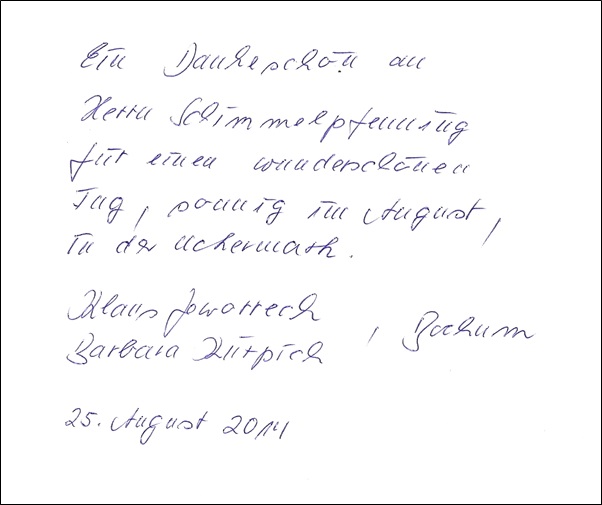 Ein Dankeschön an
Herrn Schimmelpfennig
für einen wunderschönen
Tag, sonnig im August,
in der Uckermark.
Klaus
Barbara , Bochum
25. August 2014